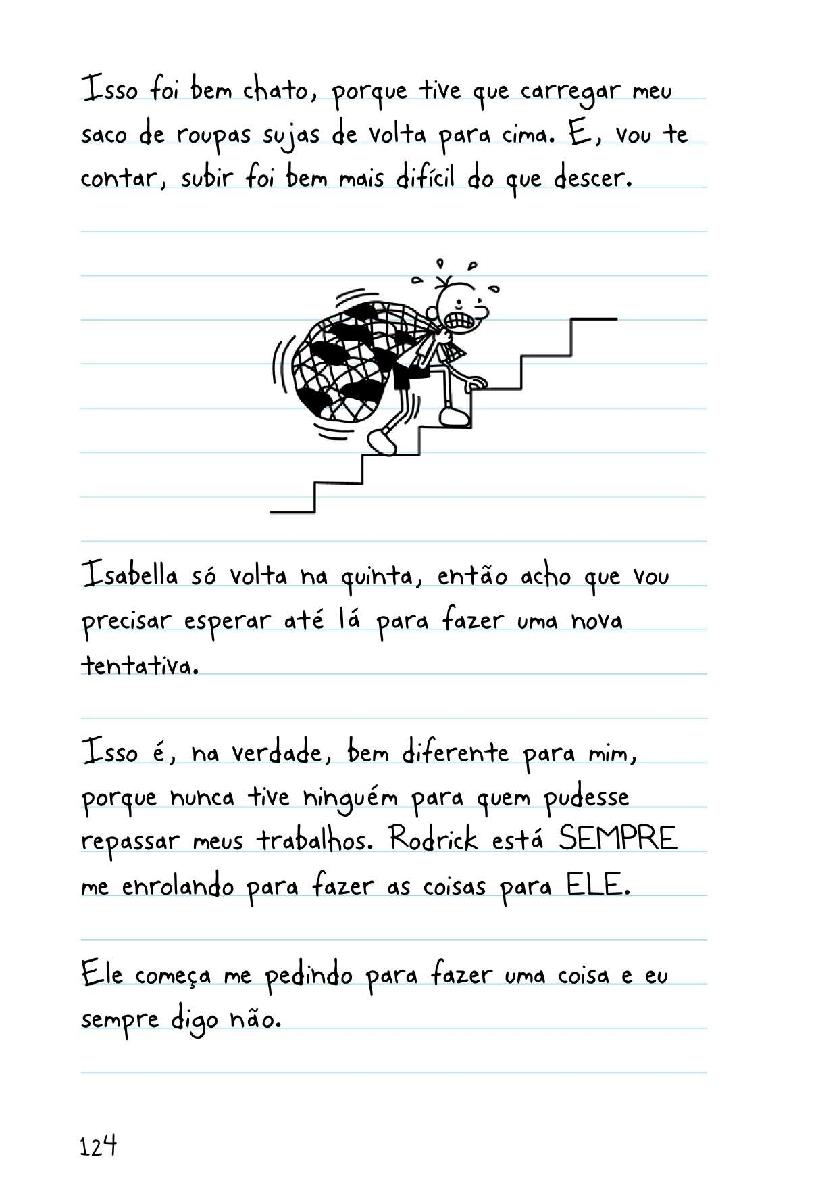 Isso foi bem chato, porque tive que carregar meu
saco de roupas sujas de volta para cima. E, vou te
contar, subir foi bem mais difícil do que descer.
Isabella só volta na quinta, então acho que vou
precisar esperar até lá para fazer uma nova
tentativa.
Isso é, na verdade, bem diferente para mim,
porque nunca tive ninguém para quem pudesse
repassar meus trabalhos. Rodrick está SEMPRE
me enrolando para fazer as coisas para ELE.
Ele começa me pedindo para fazer uma coisa e eu
sempre digo não.
124